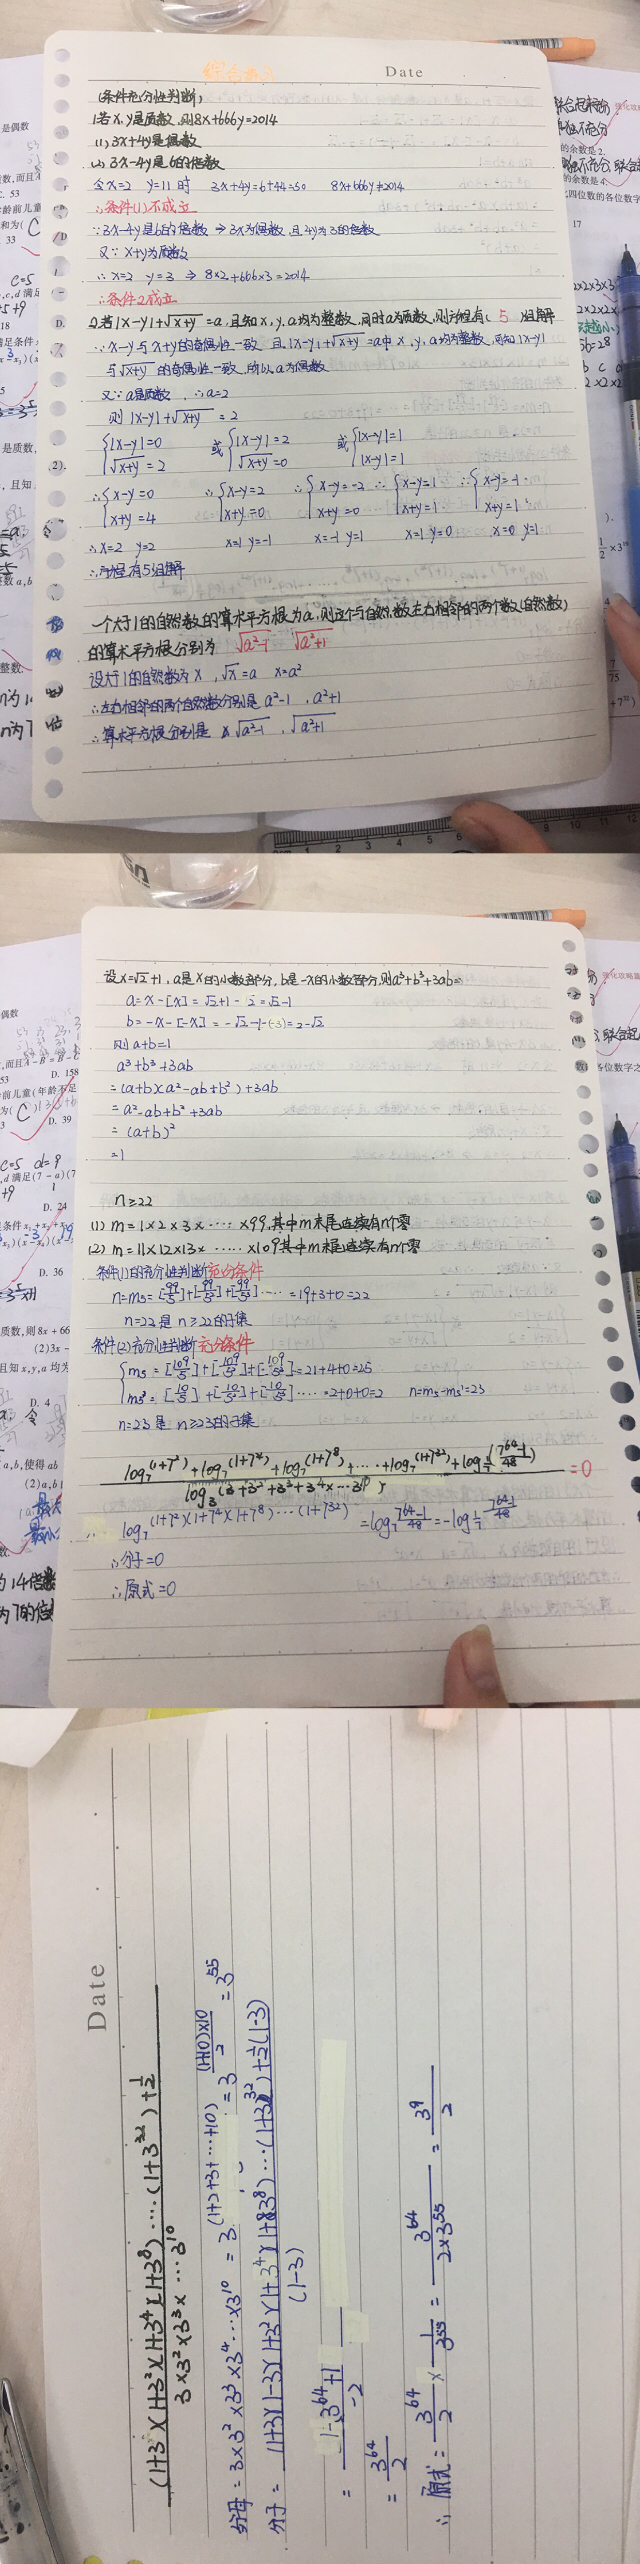 综合数
Date
(条件充分性判断)
1.若x,y是质数,则8x+666y=2014
(1) 3x+4y是偶数
(2) 3x-4y是6的倍数
令x=2 y=11时 3x+4y=6+44=50 8x+666y≠2014
∴条件(1)不成立
∵3x-4y是6的倍数 ⇒ 3x为偶数,且4y为3的倍数
又∵x+y为质数
∴x=2 y=3 ⇒ 8×2+666×3=2014
∴条件2成立
2.若|x-y|+√(x+y)=a,且知x,y,a均为整数,同时a为质数,则方程有(5)组解
∵x-y与x+y的奇偶性一致 且|x-y|+√(x+y)=a中x,y,a均为整数,可知|x-y|
与√(x+y)的奇偶性一致,所以a为偶数
又∵a是质数,∴a=2
则|x-y|+√(x+y)=2
{|x-y|=0 或{|x-y|=2 或{|x-y|=1
√(x+y)=2 √(x+y)=0 |x-y|=1
∴{x-y=0 ∴{x-y=2 ∴{x-y=-2 ∴{x-y=1 ∴{x-y=-1
x+y=4 x+y=0 x+y=0 x+y=1 x+y=1
∴x=2 y=2 x=1 y=-1 x=-1 y=1 x=1 y=0 x=0 y=1
∴方程有5组解
一个大于1的自然数的算术平方根为a,则这个与自然数左右相邻的两个数(自然数)
的算术平方根分别为 √(a²-1) √(a²+1)
设大于1的自然数为x,√x=a x=a²
∴左右相邻的两个自然数分别是a²-1,a²+1
∴算术平方根分别是 √(a²-1),√(a²+1)
设x=√2+1,a是x的小数部分,b是-x的小数部分,则a³+b³+3ab=
a=x-[x]=√2+1-2=√2-1
b=-x-[-x]=-√2-1-(-3)=2-√2
则a+b=1
a³+b³+3ab
=(a+b)(a²-ab+b²)+3ab
=a²-ab+b²+3ab
=(a+b)²
=1
n≥22
(1) m=1×2×3×……×99,其中m末尾连续有n个零
(2) m=11×12×13×……×109其中m末尾连续有n个零
条件(1)的充分性判断充分条件
n=m5=[99/5]+[99/5²]+[99/5³]……=19+3+0=22
n=22是n≥22的子集
条件(2)充分性判断充分条件
{m5=[109/5]+[109/5²]+[109/5³]=21+4+0=25
m5'=[10/5]+[10/5²]+[10/5³]……=2+0+0=2 n=m5-m5'=23
n=23是n≥23的子集
log₇(1+7²)+log₇(1+7⁴)+log₇(1+7⁸)+……+log₇(1+7³²)+log_{1/7}((7⁶⁴-1)/48)
log₃(3+3²+3³+3⁴×…3¹⁰) =0
∴log₇(1+7²)(1+7⁴)(1+7⁸)…(1+7³²)=log₇(7⁶⁴-1)/48=-log_{1/7}(7⁶⁴-1)/48
∴分子=0
∴原式=0
Date
(1+3)(1+3²)(1+3⁴)(1+3⁸)……(1+3³²)+1/2
3×3²×3³×…3¹⁰
分母=3×3²×3³×3⁴…×3¹⁰=3^(1+2+3+…+10)=3^((1+10)×10/2)=3⁵⁵
分子=(1+3)(1-3)(1+3²)(1+3⁴)(1+3⁸)…(1+3³²)+1/2(1-3)
(1-3)
=1-3⁶⁴+1
-2
=3⁶⁴/2
∴原式=3⁶⁴/2×1/3⁵⁵=3⁶⁴/(2×3⁵⁵)=3⁹/2